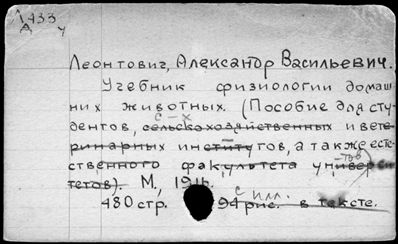 1933
Д у
Леонтович, Александр Васильевич.
Учебник физиологии домаш
них животных. (Пособие для сту-
с-х
дентов, сельскохозяйственных и вете-
ринарных институтов, а также есте-
ственного факультета универси
-тов
тетов). М., 1916.
с илл.
480 стр. 94 рис. в тексте.